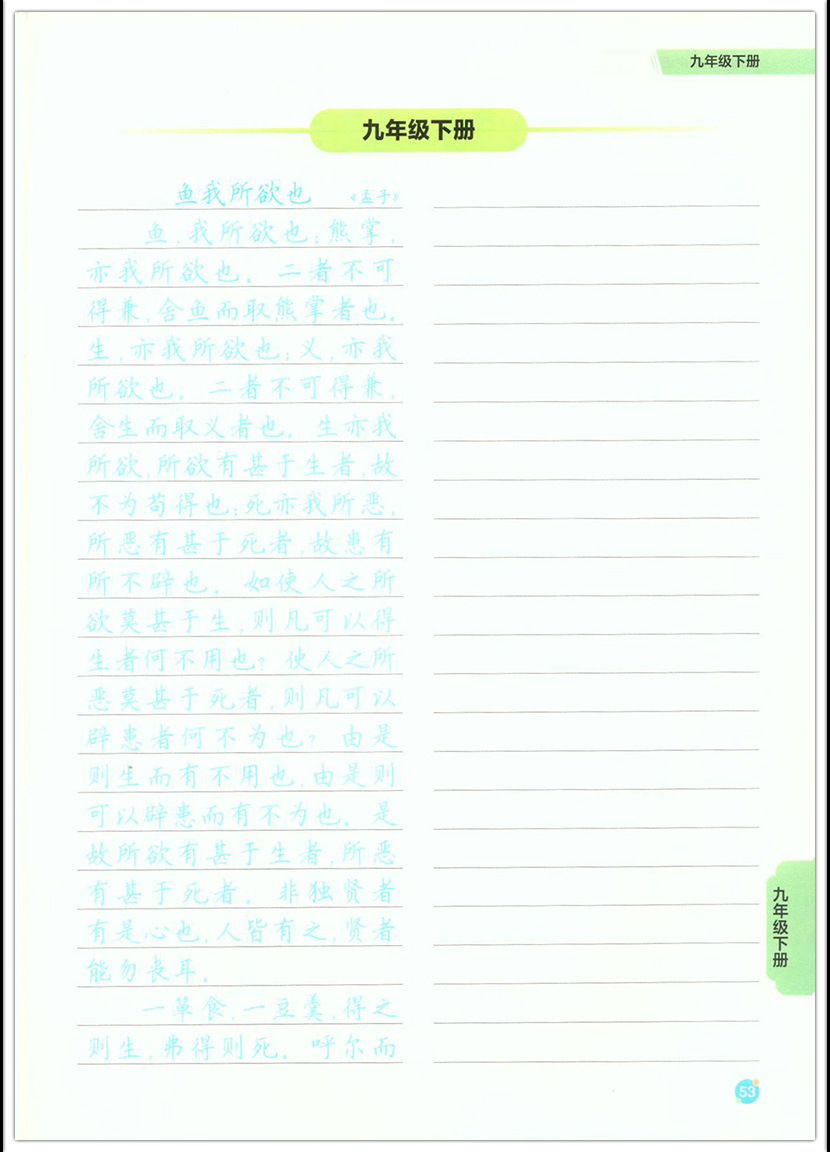 九年级下册
九年级下册
鱼我所欲也 《孟子》
鱼,我所欲也;熊掌,
亦我所欲也。二者不可
得兼,舍鱼而取熊掌者也。
生,亦我所欲也;义,亦我
所欲也。二者不可得兼,
舍生而取义者也。生亦我
所欲,所欲有甚于生者,故
不为苟得也;死亦我所恶,
所恶有甚于死者,故患有
所不辟也。如使人之所
欲莫甚于生,则凡可以得
生者何不用也?使人之所
恶莫甚于死者,则凡可以
辟患者何不为也?由是
则生而有不用也,由是则
可以辟患而有不为也。是
故所欲有甚于生者,所恶
有甚于死者。非独贤者
有是心也,人皆有之,贤者
能勿丧耳。
一箪食,一豆羹,得之
则生,弗得则死。呼尔而
九年级下册
53